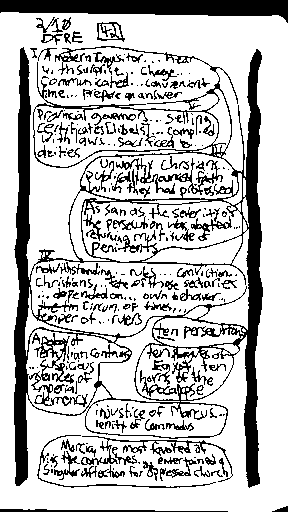 2/10 [42]
DFRE
I. A modern Inquisitor... hear
with surprise... charge...
communicated... convenient
time... prepare an answer
II
provincial governors... selling
certificates [libels]... complied
with laws... sacrificed to
deities
III
Unworthy Christians
publically denounced faith
which they had professed
As soon as the severity of
the persecution was abated...
returning multitude of
penitents
IV
notwithstanding... rules... conviction...
Christians, fate of those sectaries
... depended on... own behavior...
the Circum. of times,...
temper of... rulers
Apology of
Tertullian contains
... suspicious
instances of
imperial
clemency
ten persecutions
ten plagues of
Egypt, ten
horns of the
Apocalypse
injustice of Marcus...
lenity of Commodus
Marcia, the most favored of
his concubines... entertained a
singular affection for oppressed church